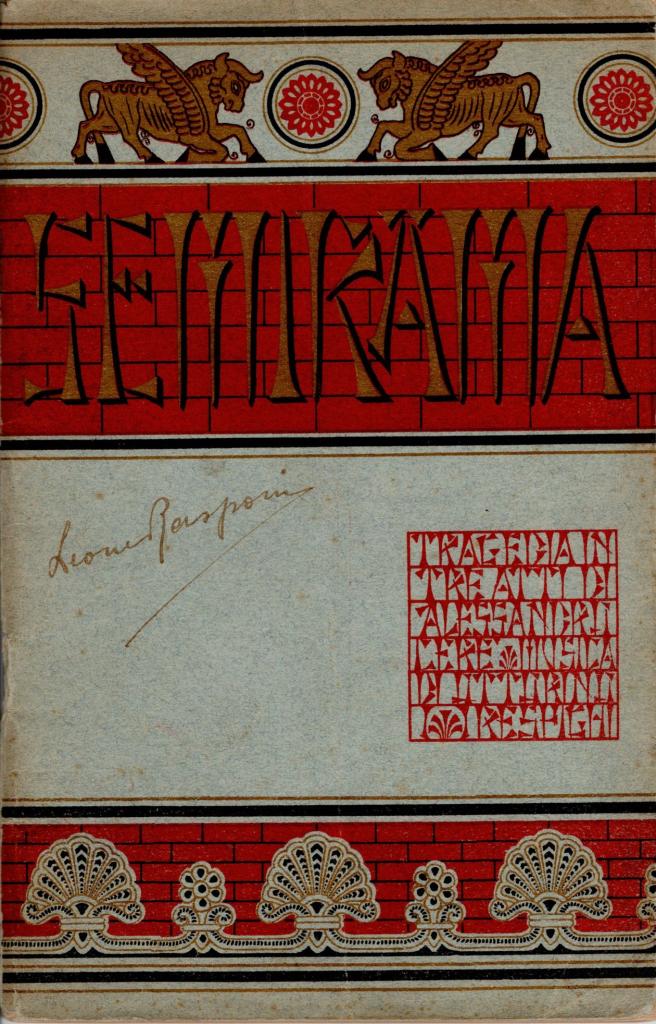 SEMIRÂMA
Leone Rasponi
TRAGEDIA IN
TRE ATTI DI
ALESSANDRO
CERÉ MUSICA
DI OTTORINO
RESPIGHI